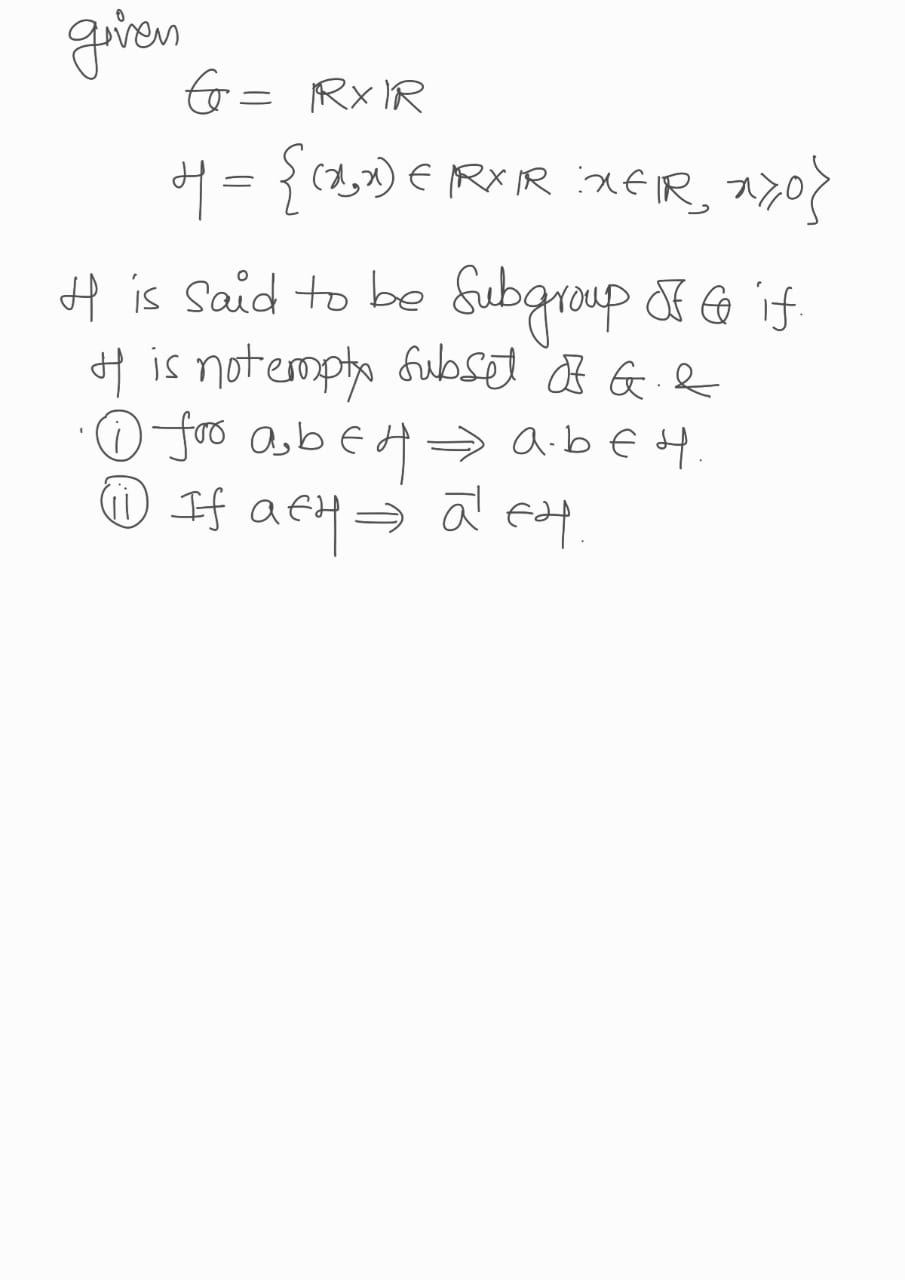 given
G = ℝ×ℝ
H = {(x,x) ∈ ℝ×ℝ : x∈ℝ, x⩾0}
H is said to be Subgroup of G if.
H is not empty Subset of G. &
(i) for a,b ∈ H ⇒ a·b ∈ H.
(ii) If a∈H ⇒ a⁻¹ ∈ H.